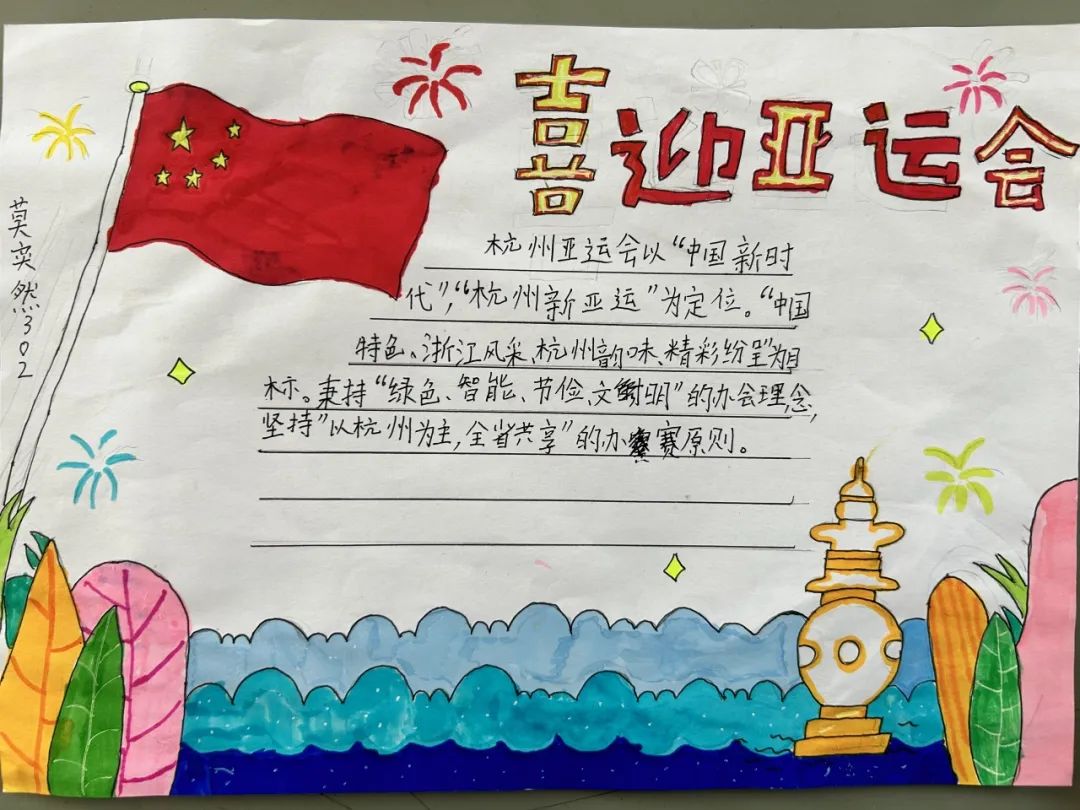 喜迎亚运会
莫奕然302
杭州亚运会以“中国新时
代”，“杭州新亚运”为定位。“中国
特色、浙江风采、杭州韵味、精彩纷呈”为目
标。秉持“绿色、智能、节俭、文明”的办会理念，
坚持”以杭州为主，全省共享”的办赛原则。